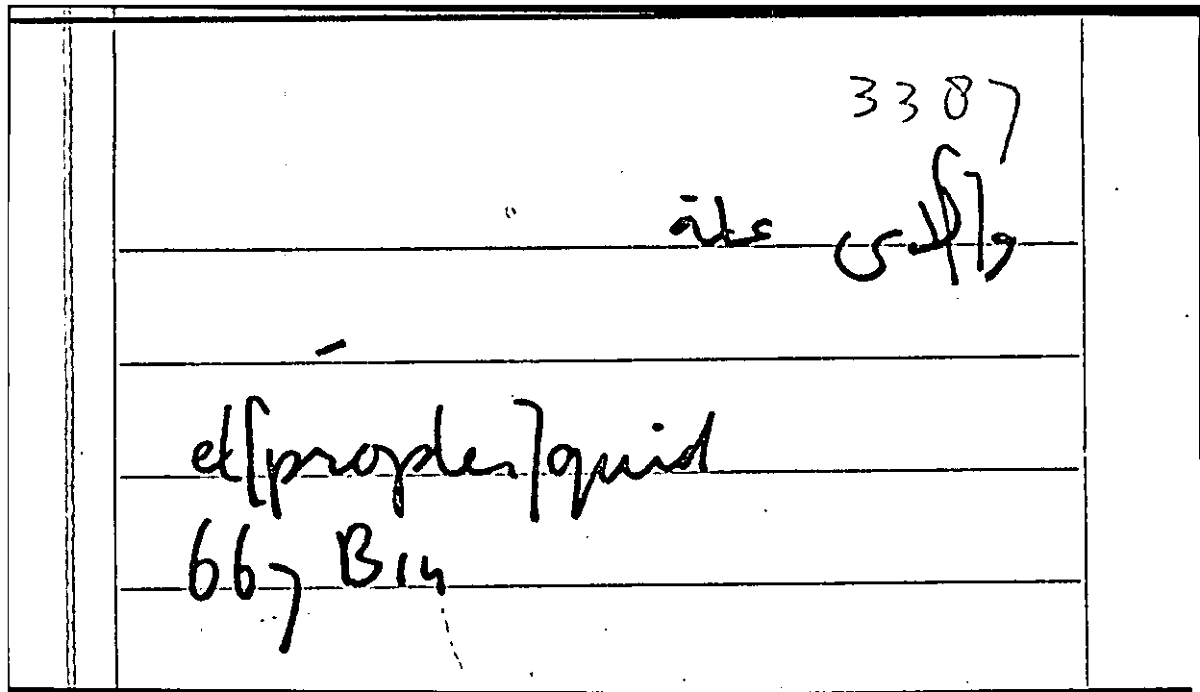 3387
و[ل]اى علة
et [propter] quid
667 B14